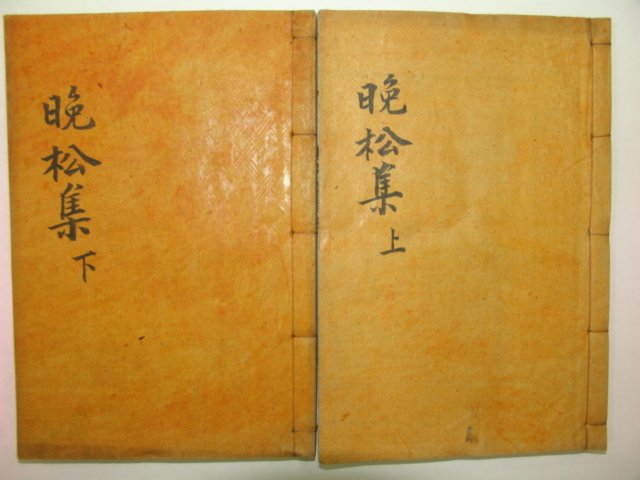 晩松集上
晩松集下